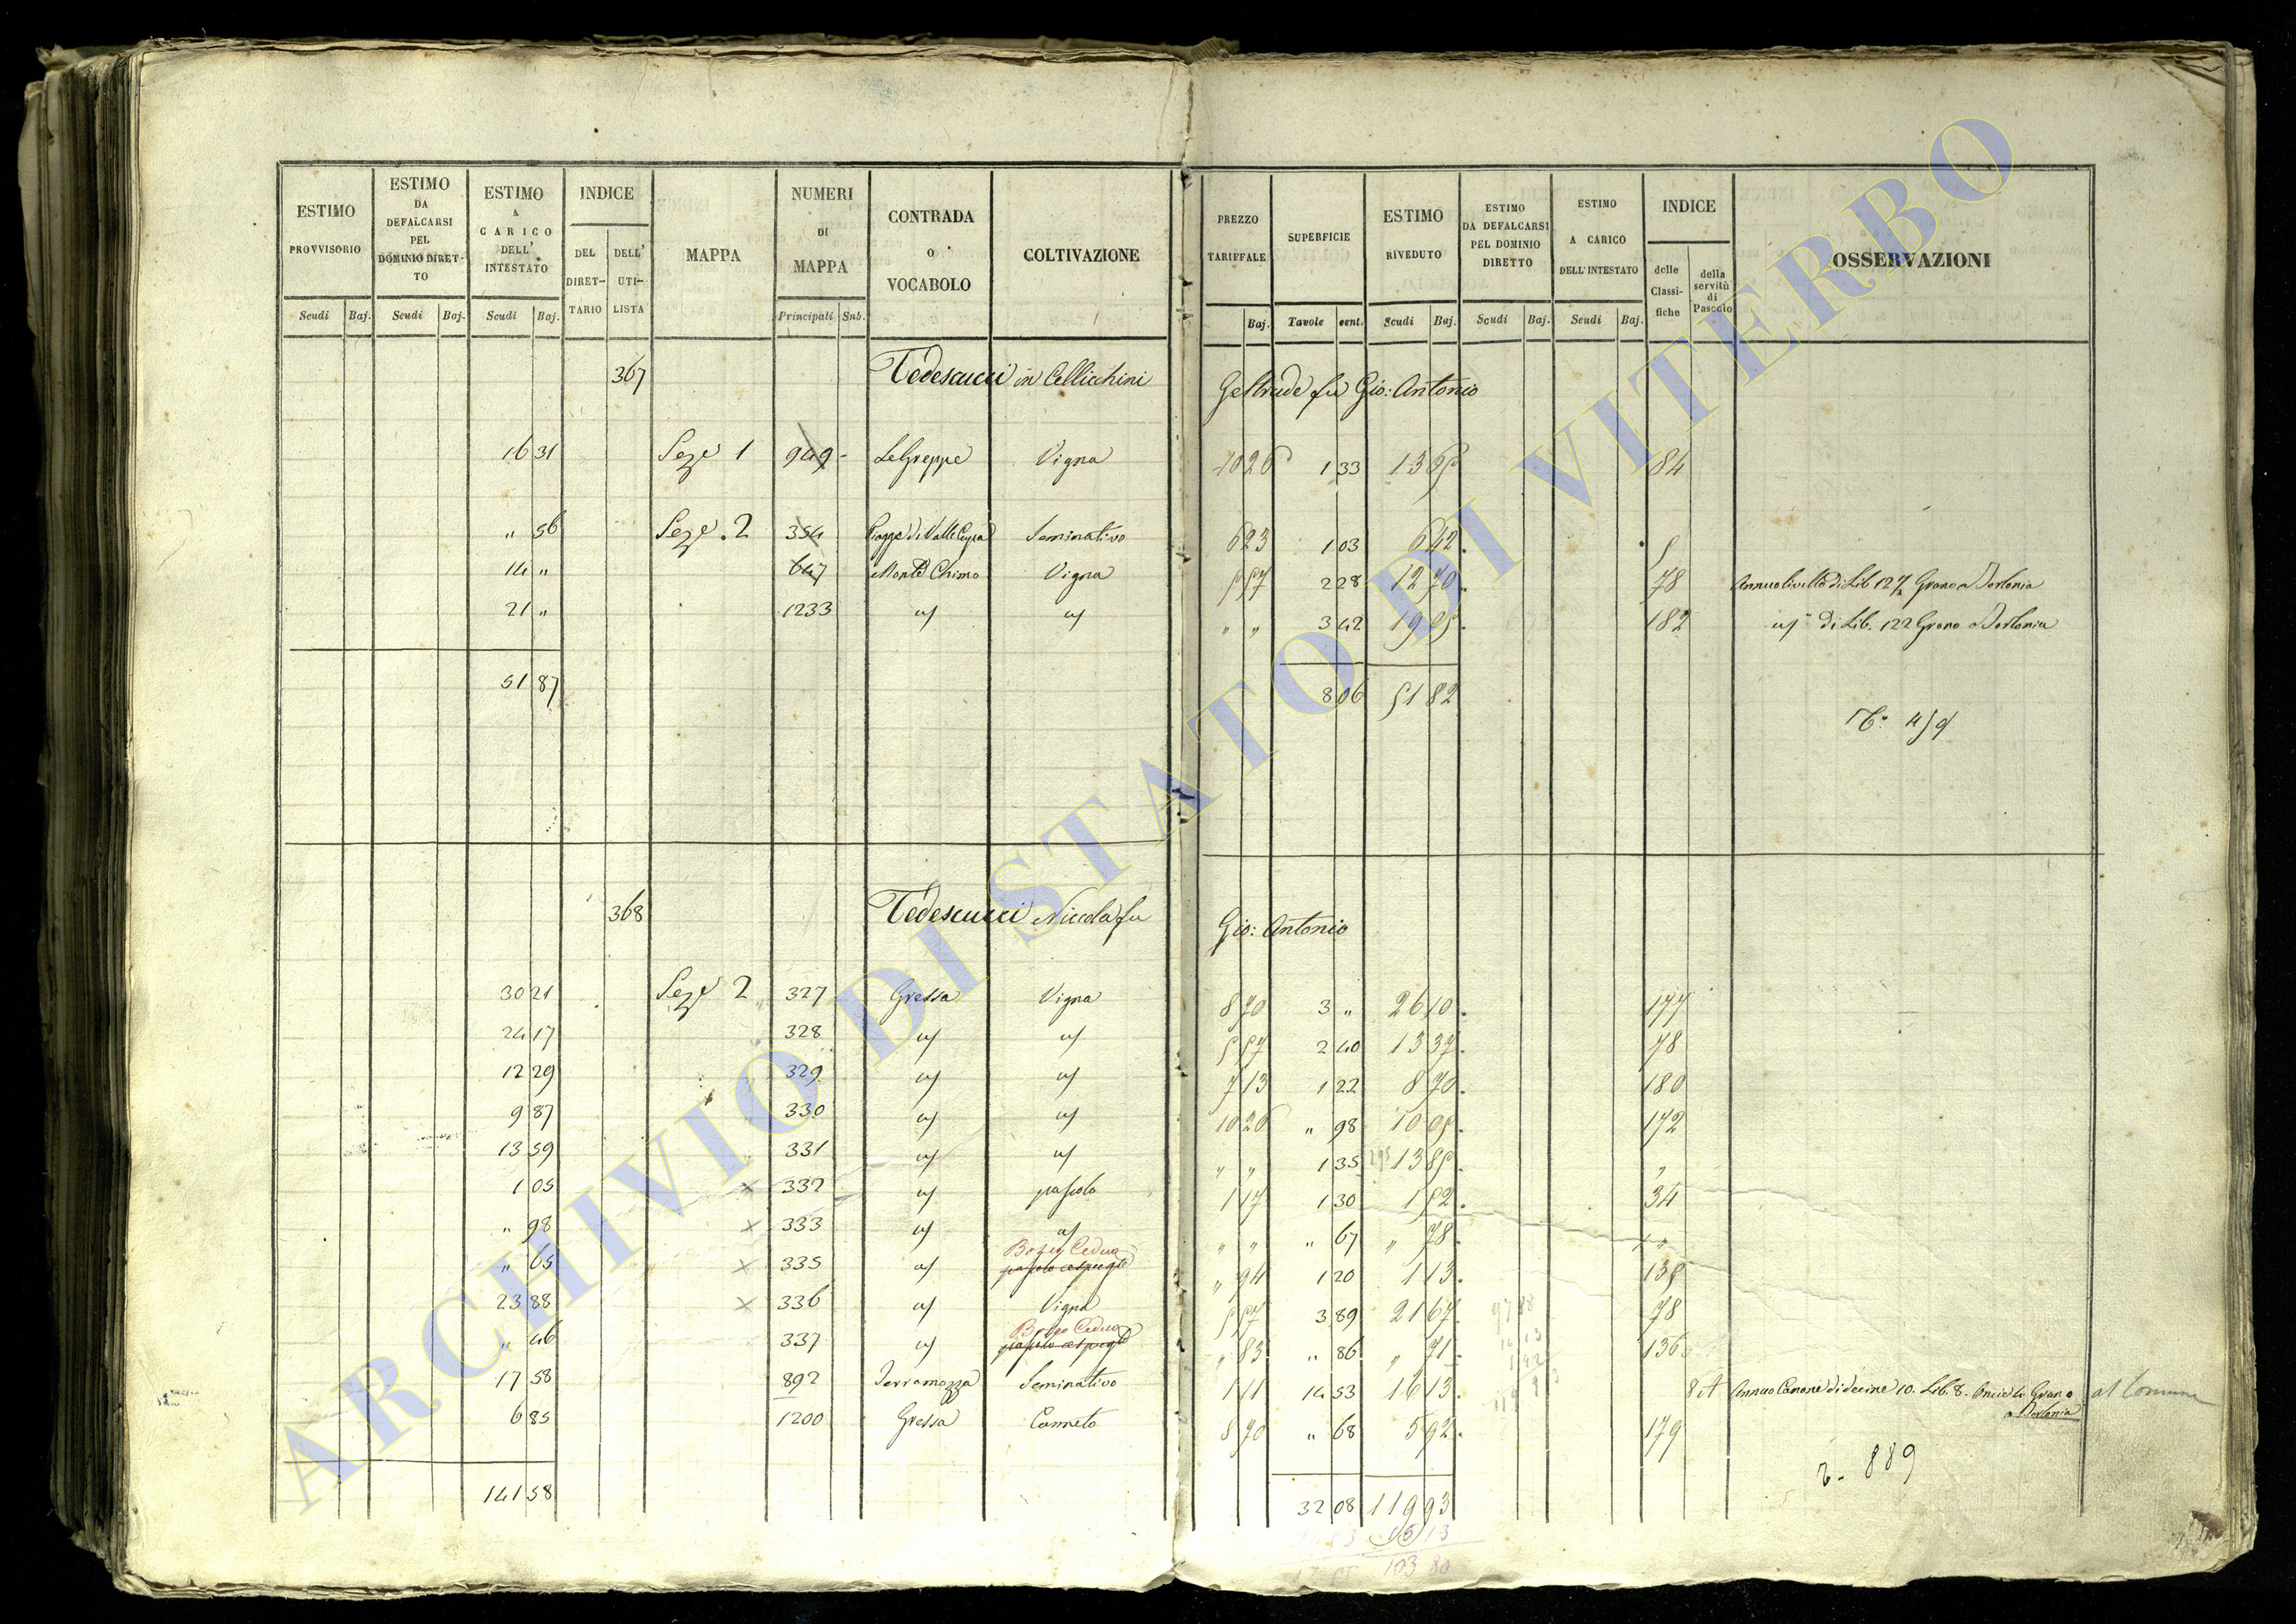 ESTIMO PROVVISORIO | ESTIMO DA DEFALCARSI PEL DOMINIO DIRETTO | ESTIMO A CARICO DELL' INTESTATO | INDICE | MAPPA | NUMERI DI MAPPA | CONTRADA O VOCABOLO | COLTIVAZIONE | PREZZO TARIFFALE | SUPERFICIE | ESTIMO RIVEDUTO | ESTIMO DA DEFALCARSI PEL DOMINIO DIRETTO | ESTIMO A CARICO DELL'INTESTATO | INDICE | OSSERVAZIONI
DEL DIRETTARIO | DELL' UTILISTA | delle Classifiche | della servitù di Pascolo
Scudi | Baj. | Scudi | Baj. | Scudi | Baj. | Principali | Sub. | Baj. | Tavole | cent. | Scudi | Baj. | Scudi | Baj. | Scudi | Baj.
367 Tedescucci in Cellicchini Geltrude fu Gio: Antonio
16 31 Seze 1 949 LeGreppe Vigna 10 26 1 33 13 65 84
" 56 Seze. 2 354 Seminativo 6 23 1 03 6 42 5
14 " 647 Monte Chimo Vigna 5 57 2 28 12 70 78 Annuo livello di Lib 12 1/2 Grano a Torlonia
21 " 1233 a/ a/ " " 3 42 19 05 182 a/ di Lib. 122 Grano a Torlonia
51 87 8 06 51 82
459
368 Tedescucci Niccola fu Gio: Antonio
30 21 Seze 2 327 Gressa Vigna 8 70 3 " 26 10 177
24 17 328 a/ a/ 5 57 2 40 13 37 78
12 29 329 a/ a/ 7 13 1 22 8 70 180
9 87 330 a/ a/ 10 26 " 98 10 05 172
13 59 331 a/ a/ " " 1 35 13 85 "
1 05 × 332 a/ pascolo 1 17 1 30 1 52 34
" 98 × 333 a/ a/ " " " 67 " 78 "
" 65 × 335 a/ Bosco Ceduo pascolo cespuglio " 94 1 20 1 13 135
23 88 × 336 a/ Vigna 5 57 3 89 21 67 78
" 46 337 a/ Bosco Ceduo pascolo cespuglio " 83 " 86 " 71 136
17 58 892 Terramozza Seminativo 1 11 14 53 16 13 8 A Annuo Canone di decine 10. Lib. 8. Oncie 4 Grano a Torlonia al Comune
6 85 1200 Gressa Canneto 8 70 " 68 5 92 179
889
141 58 32 08 119 93
16 13
103 80
ARCHIVIO DI STATO DI VITERBO